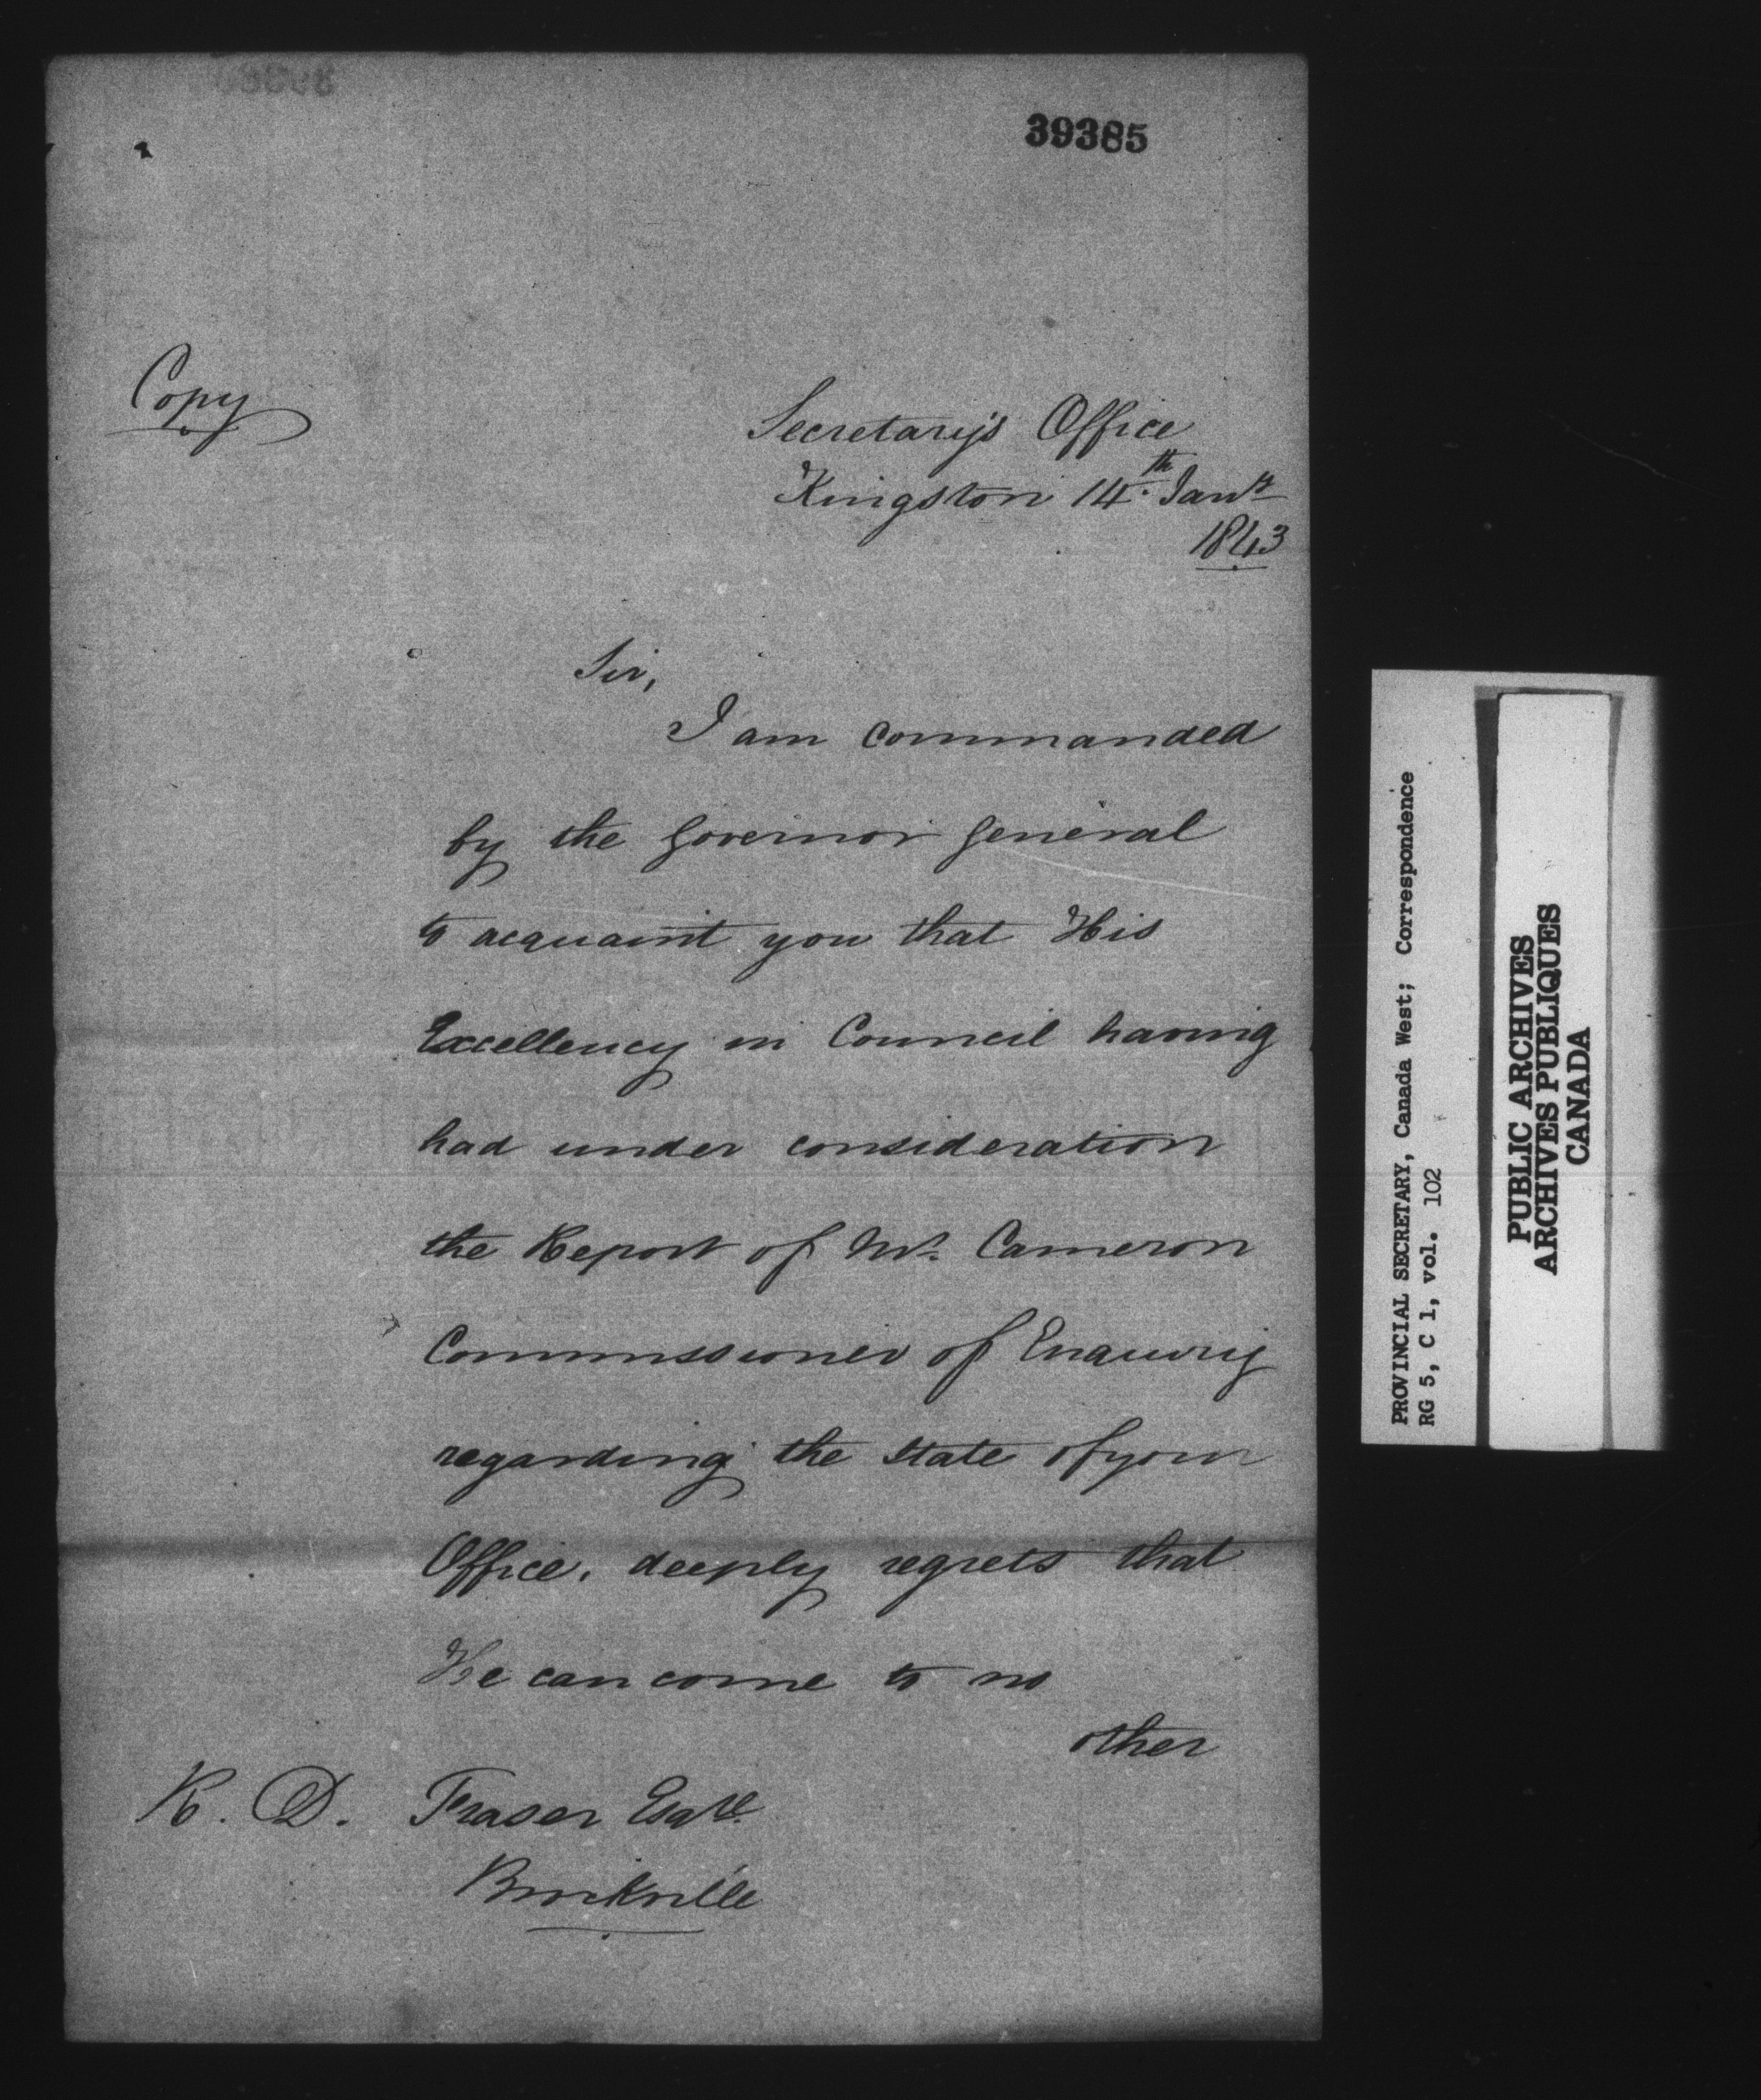 39385
Copy
Secretary's Office
Kingston 14th. Jany
1843
Sir,
I am commanded
by the Governor General
to acquaint you that His
Excellency in Council having
had under consideration
the Report of Mr. Cameron
Commissioner of Enquiry
regarding the State of your
Office, deeply regrets that
He can come to no
other
R. D. Fraser Esqre.
Brockville
PROVINCIAL SECRETARY, Canada West; Correspondence
RG 5, C 1, vol. 102
PUBLIC ARCHIVES
ARCHIVES PUBLIQUES
CANADA